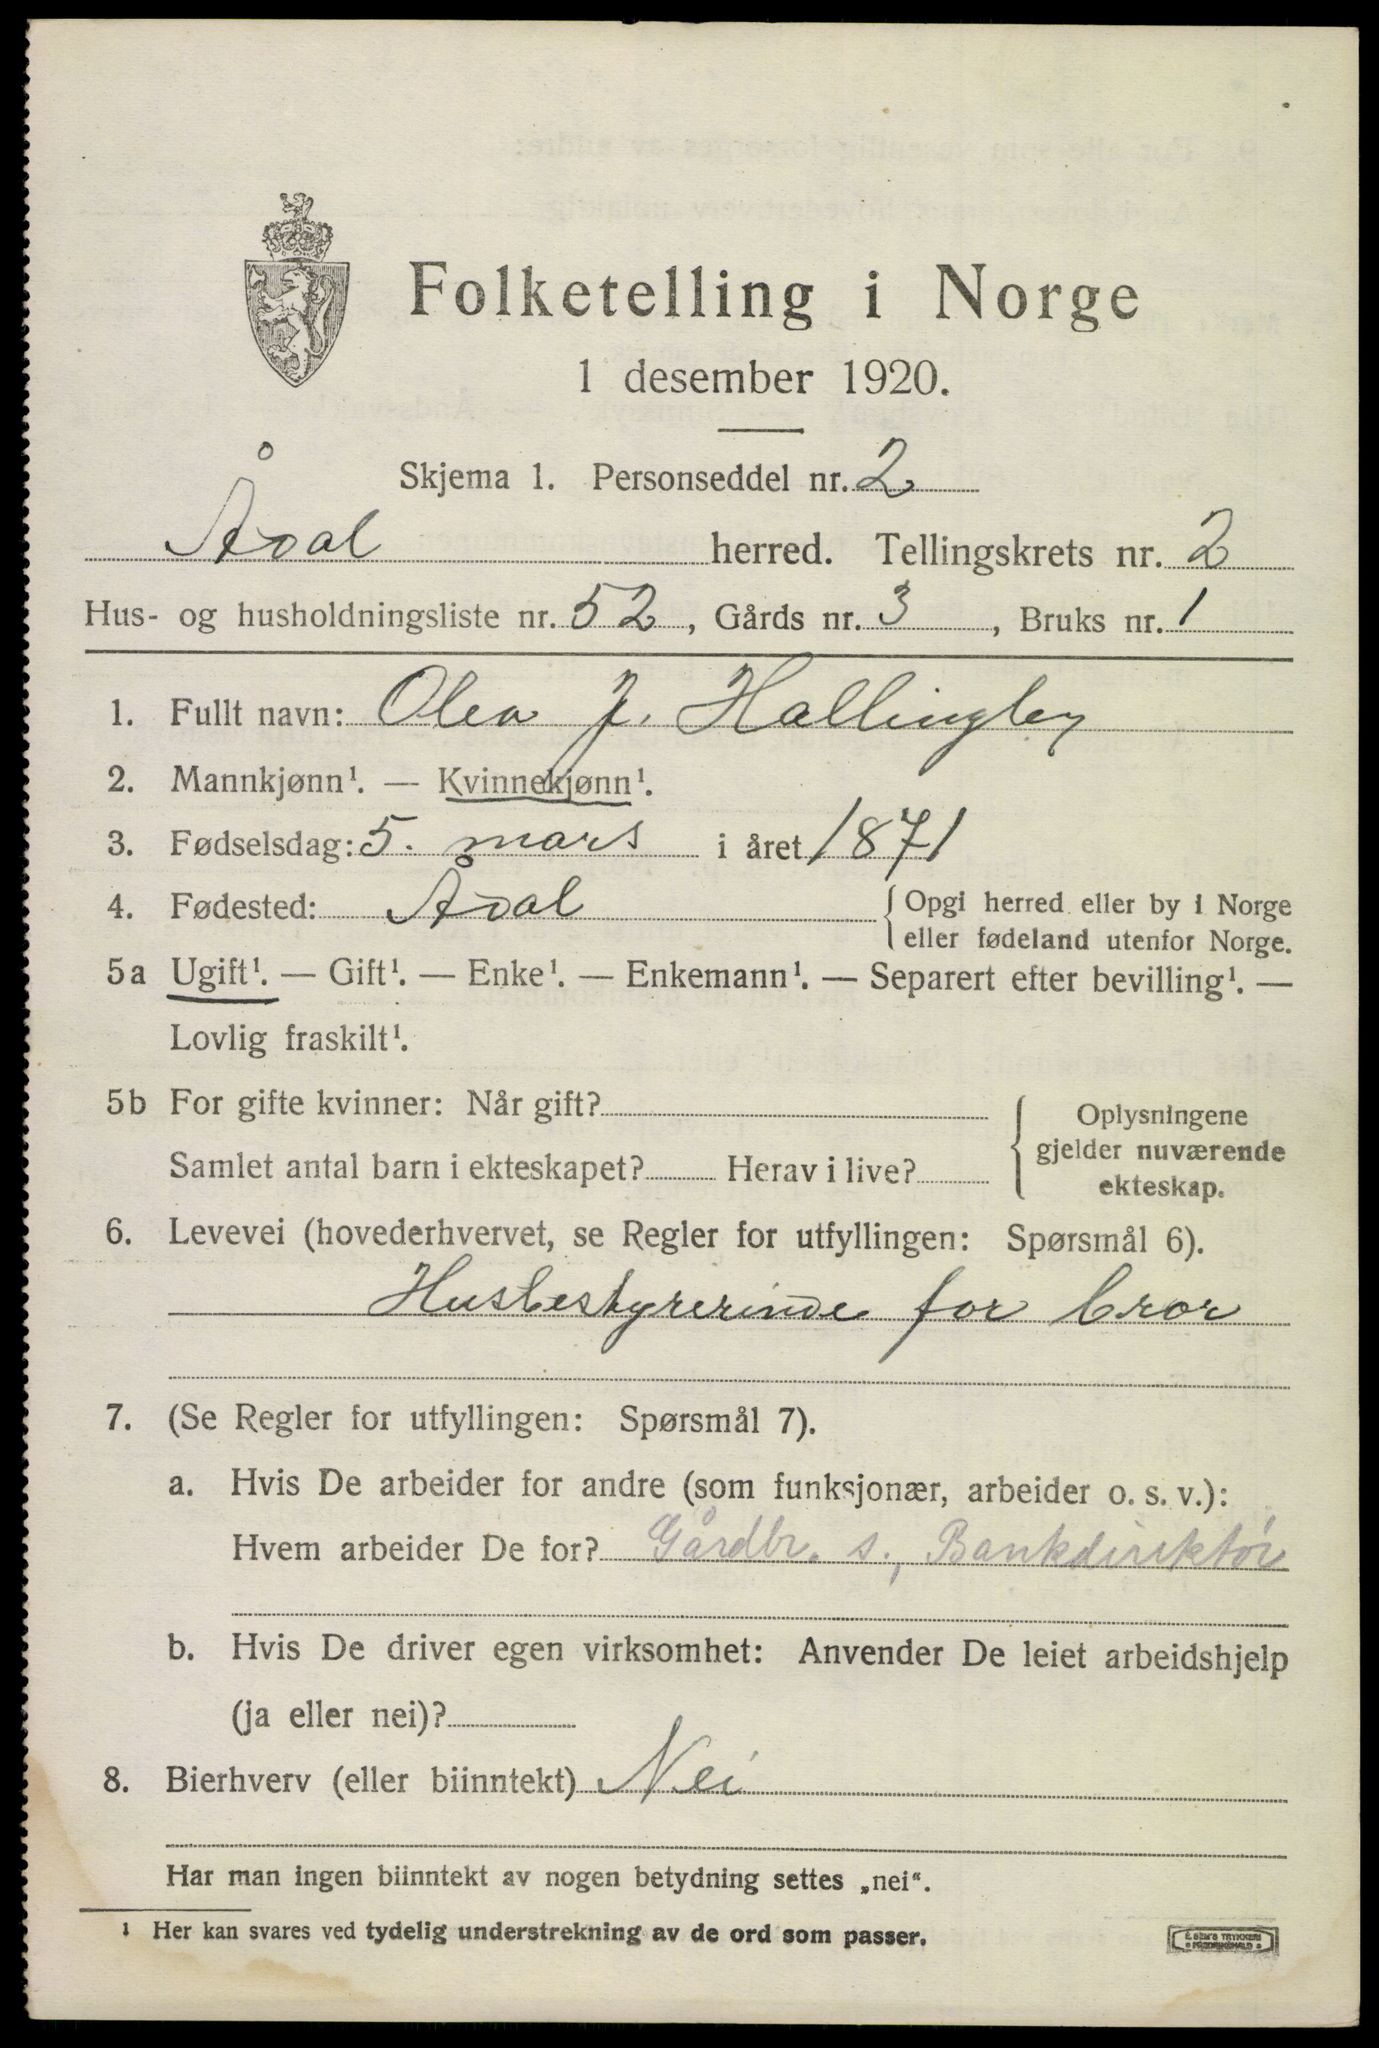 Folketelling i Norge
1 desember 1920.
Skjema 1. Personseddel nr. 2
Ådal herred. Tellingskrets nr. 2
Hus- og husholdningsliste nr. 52, Gårds nr. 3, Bruks nr. 1
1. Fullt navn: Olea J. Hallingby
2. Mannkjønn¹. — Kvinnekjønn¹.
3. Fødselsdag: 5. mars i året 1871
4. Fødested: Ådal { Opgi herred eller by i Norge
eller fødeland utenfor Norge.
5a Ugift¹. — Gift¹. — Enke¹. — Enkemann¹. — Separert efter bevilling¹. —
Lovlig fraskilt¹.
5b For gifte kvinner: Når gift? { Oplysningene
gjelder nuværende
Samlet antal barn i ekteskapet? Herav i live?
ekteskap.
6. Levevei (hovederhvervet, se Regler for utfyllingen: Spørsmål 6).
Husbestyrerinde for bror
7. (Se Regler for utfyllingen: Spørsmål 7).
a. Hvis De arbeider for andre (som funksjonær, arbeider o. s. v.):
Hvem arbeider De for? Gårdbr. s., Bankdirektør
b. Hvis De driver egen virksomhet: Anvender De leiet arbeidshjelp
(ja eller nei)?
8. Bierhverv (eller biinntekt) Nei
Har man ingen biinntekt av nogen betydning settes „nei“.
¹ Her kan svares ved tydelig understrekning av de ord som passer.
E. SEM'S TRYKKERI
FREDRIKSHALD